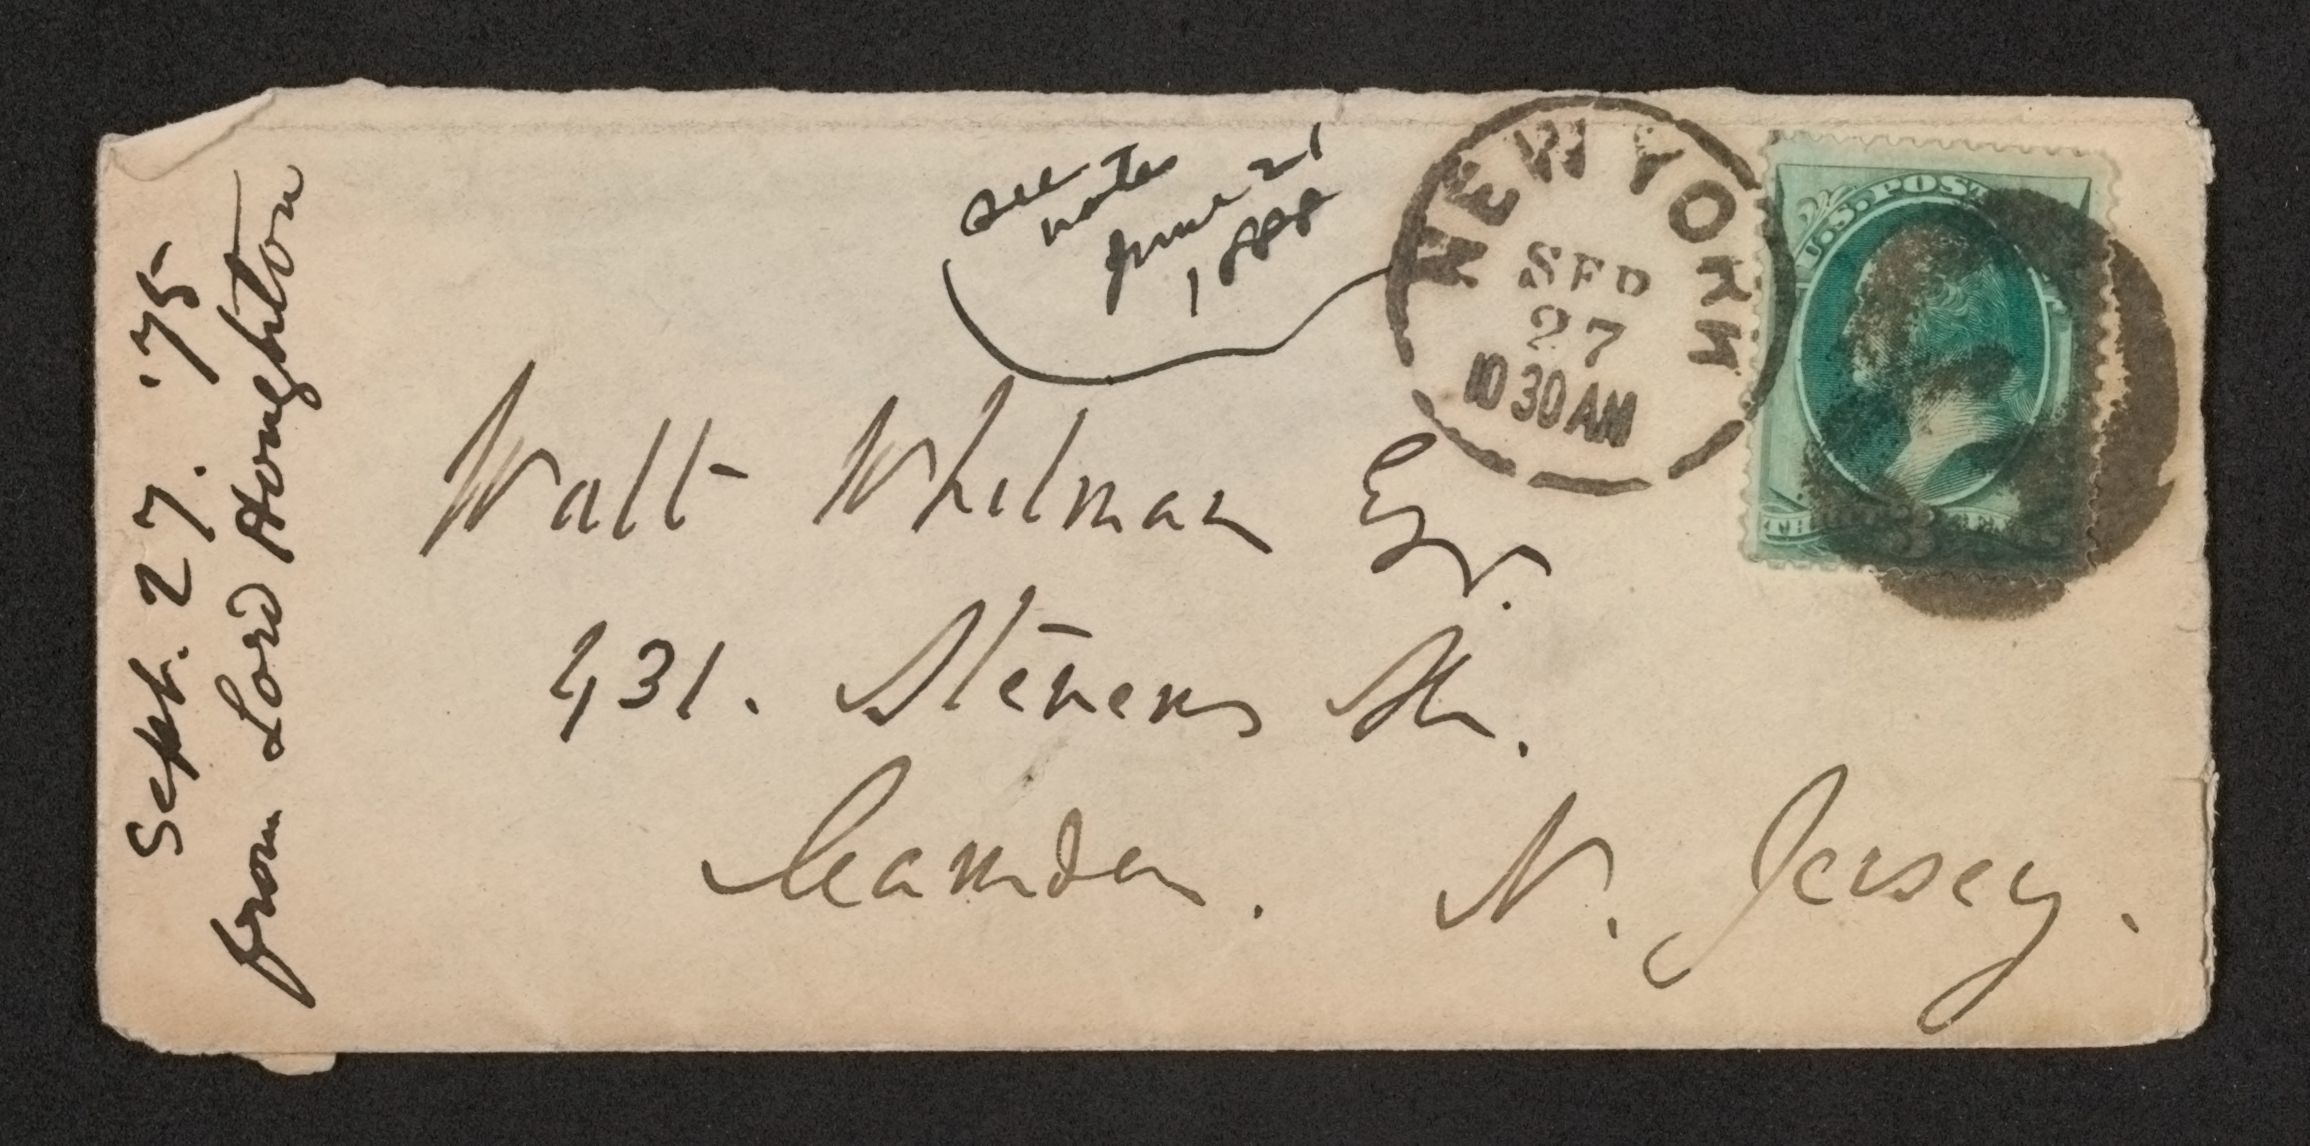 Sept. 27. '75
from Lord Houghton
see
notes
June 21
1888
NEW YORK
SEP
27
10 30 AM
U.S. POST
Walt Whitman Esqr.
431. Stevens Str.
Camden. N. Jersey.